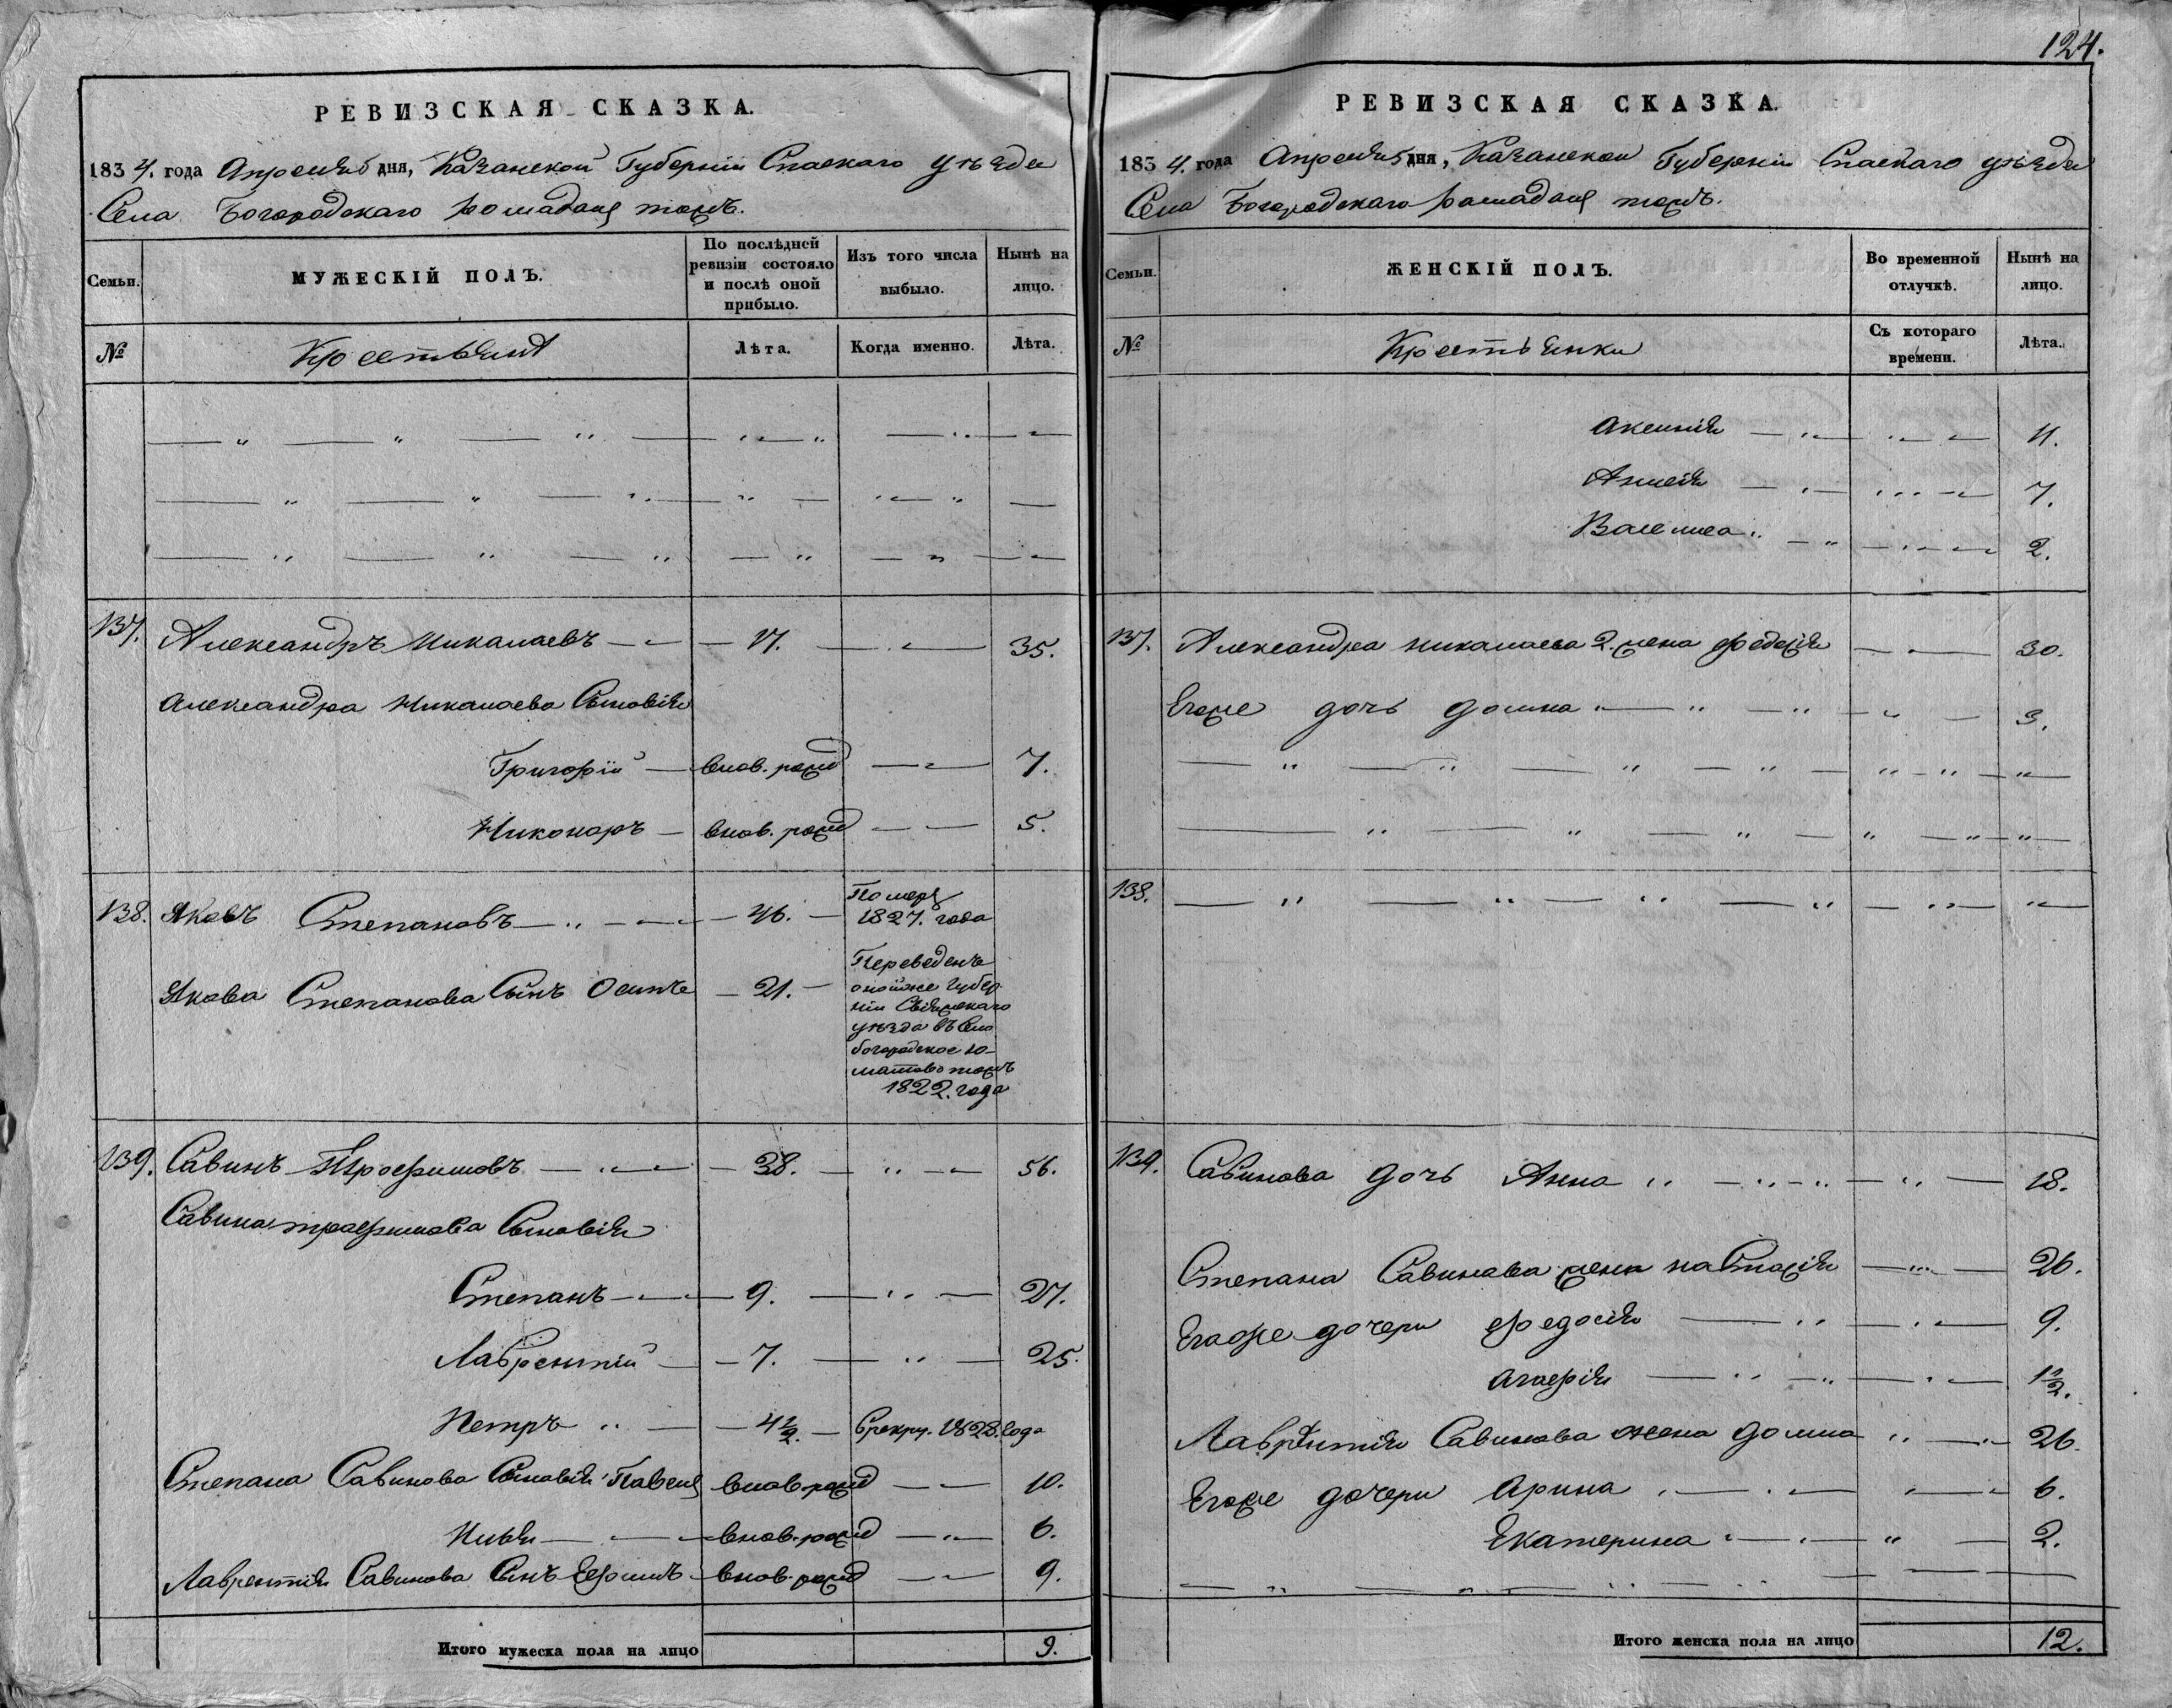 124.
РЕВИЗСКАЯ СКАЗКА.
1834. года Апреля 5 дня, Казанской Губерніи Спаскаго уѣзда
Села Богородскаго тожъ.
Семьи.
МУЖЕСКІЙ ПОЛЪ.
По послѣдней ревизіи состояло и послѣ оной прибыло.
Изъ того числа выбыло.
Нынѣ на лицо.
№
Крестьяня
Лѣта.
Когда именно.
Лѣта.
137. Александръ Николаевъ 17. 35.
Александра Николаева Сыновья
Григорій внов. рожд 7.
Никоноръ внов. рожд 5.
138. Яковъ Степановъ 46. Померъ 1827. года
Якова Степанова Сынъ Осипъ 21. Переведенъ
оной же Губер
ніи Свіяжскаго
уѣзда въ Село
богородское Ю-
матово тожъ
1822. года
139. Савинъ Трофимовъ 38. 56.
Савина трофимова Сыновья
Степанъ 9. 27.
Лаврентій 7. 25.
Петръ 4 1/2. Врекру. 1828. года
Степана Савинова Сыновья Павелъ внов. рожд 10.
Илья внов. рожд 6.
Лаврентія Савинова Сынъ Ефимъ внов. рожд 9.
Итого мужеска пола на лицо 9.
РЕВИЗСКАЯ СКАЗКА.
1834. года Апреля 5 дня, Казанской Губерніи Спаскаго уѣзда
Села Богородскаго тожъ.
Семьи.
ЖЕНСКІЙ ПОЛЪ.
Во временной отлучкѣ.
Нынѣ на лицо.
№
Крестьянки
Съ котораго времени.
Лѣта.
Аксинія 11.
7.
Василиса 2.
137. Александра николаева 2. жена 30.
Егоже дочь домна 3.
138.
139. Савинова дочь Анна 18.
Степана Савинова жена настасія 26.
Егоже дочери федосія 9.
Агафія 1 1/2.
Лаврентія Савинова жена домна 26.
Егоже дочери Арина 6.
Екатерина 2.
Итого женска пола на лицо 12.